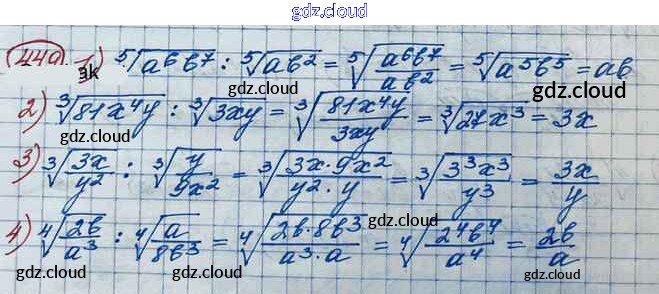 gdz.cloud
440. 1) ⁵√(a⁶b⁷) : ⁵√(ab²) = ⁵√(a⁶b⁷/ab²) = ⁵√(a⁵b⁵) = ab
эк gdz.cloud gdz.cloud
2) ³√(81x⁴y) : ³√(3xy) = ³√(81x⁴y/3xy) = ³√(27x³) = 3x
gdz.cloud gdz.cloud
3) ³√(3x/y²) : ³√(y/9x²) = ³√(3x·9x²/y²·y) = ³√(3³x³/y³) = 3x/y
gdz.cloud gdz.cloud
4) ⁴√(2b/a³) : ⁴√(a/8b³) = ⁴√(2b·8b³/a³·a) = ⁴√(2⁴b⁴/a⁴) = 2b/a
gdz.cloud gdz.cloud gdz.cloud